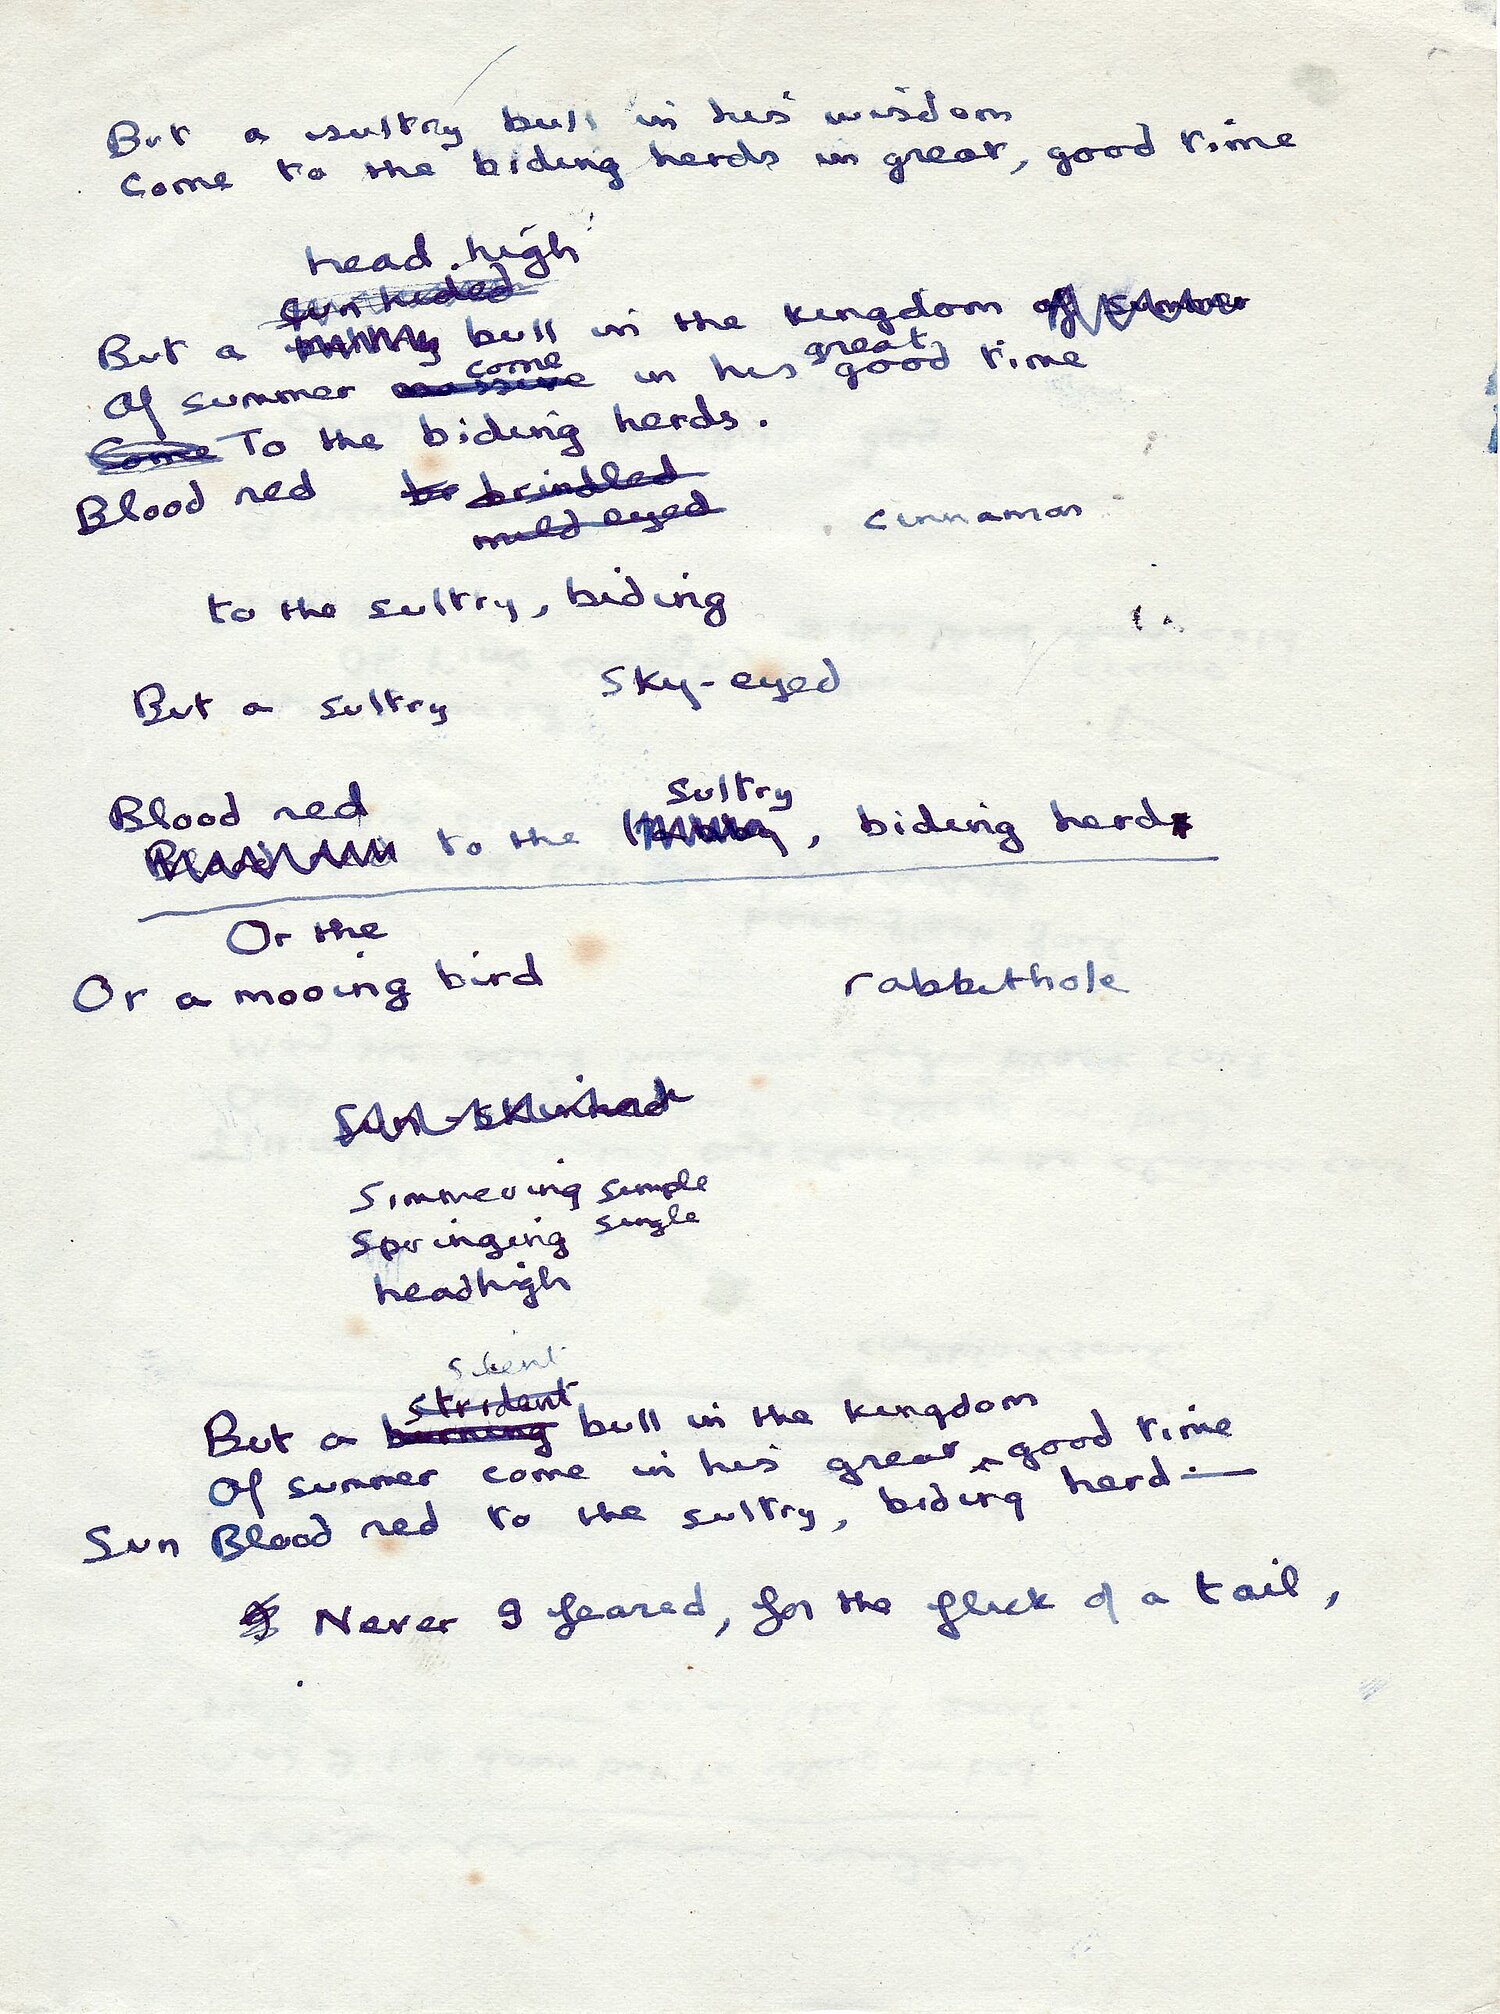 But a sultry bull in his wisdom
Come to the biding herds in great, good time
head high
sun hided
But a bull in the kingdom of summer
come great
Of summer massive in his good time
Come To the biding herds.
Blood red br brindled
mild eyed cinnamon
to the sultry, biding
Sky-eyed
But a sultry
Sultry
Blood red
Blood to the , biding herd
Or the
Or a mooing bird rabbithole
Simmering simple
Springing single
headhigh
silent
strident
But a burning bull in the kingdom
Of summer come in his great, good time
Sun Blood red to the sultry, biding herd —
Never I feared, for the flick of a tail,